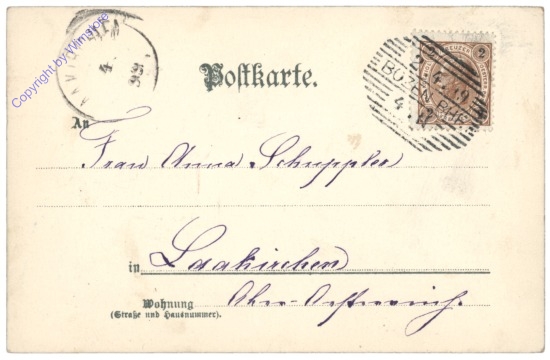 Copyright by Winstore
4
99
Postkarte.
2 KREUZER 2
BOZEN BHF
4
An
Frau Anna Schuppler
in Laakirchen
Ober-Österreich.
Wohnung
(Straße und Hausnummer).